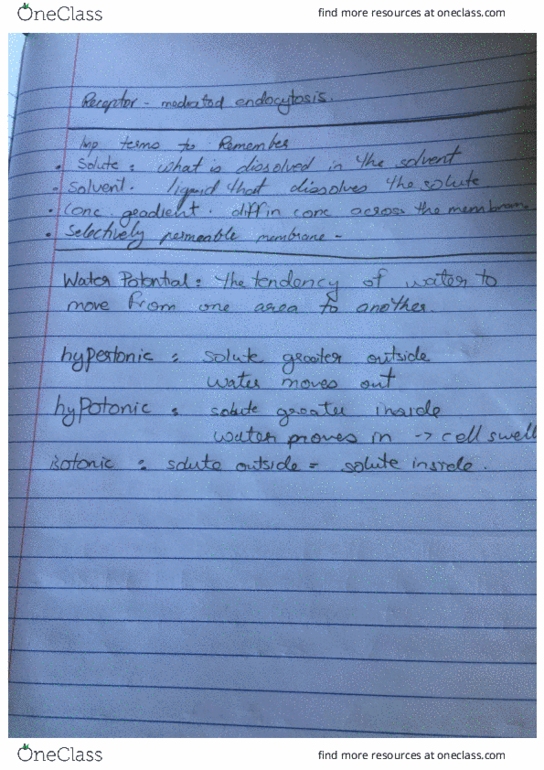 OneClass
find more resources at oneclass.com
Receptor - mediated endocytosis.
Imp terms to Remember
• Solute : what is dissolved in the solvent
- Solvent. liquid that dissolves the solute
• Conc. gradient. diff in conc across the membrane
• Selectively permeable membrane -
Water Potential : the tendency of water to
move from one area to another.
hypertonic : solute greater outside
water moves out
hypotonic : solute greater inside
water moves in -> cell swell
isotonic : solute outside = solute inside.
OneClass
find more resources at oneclass.com